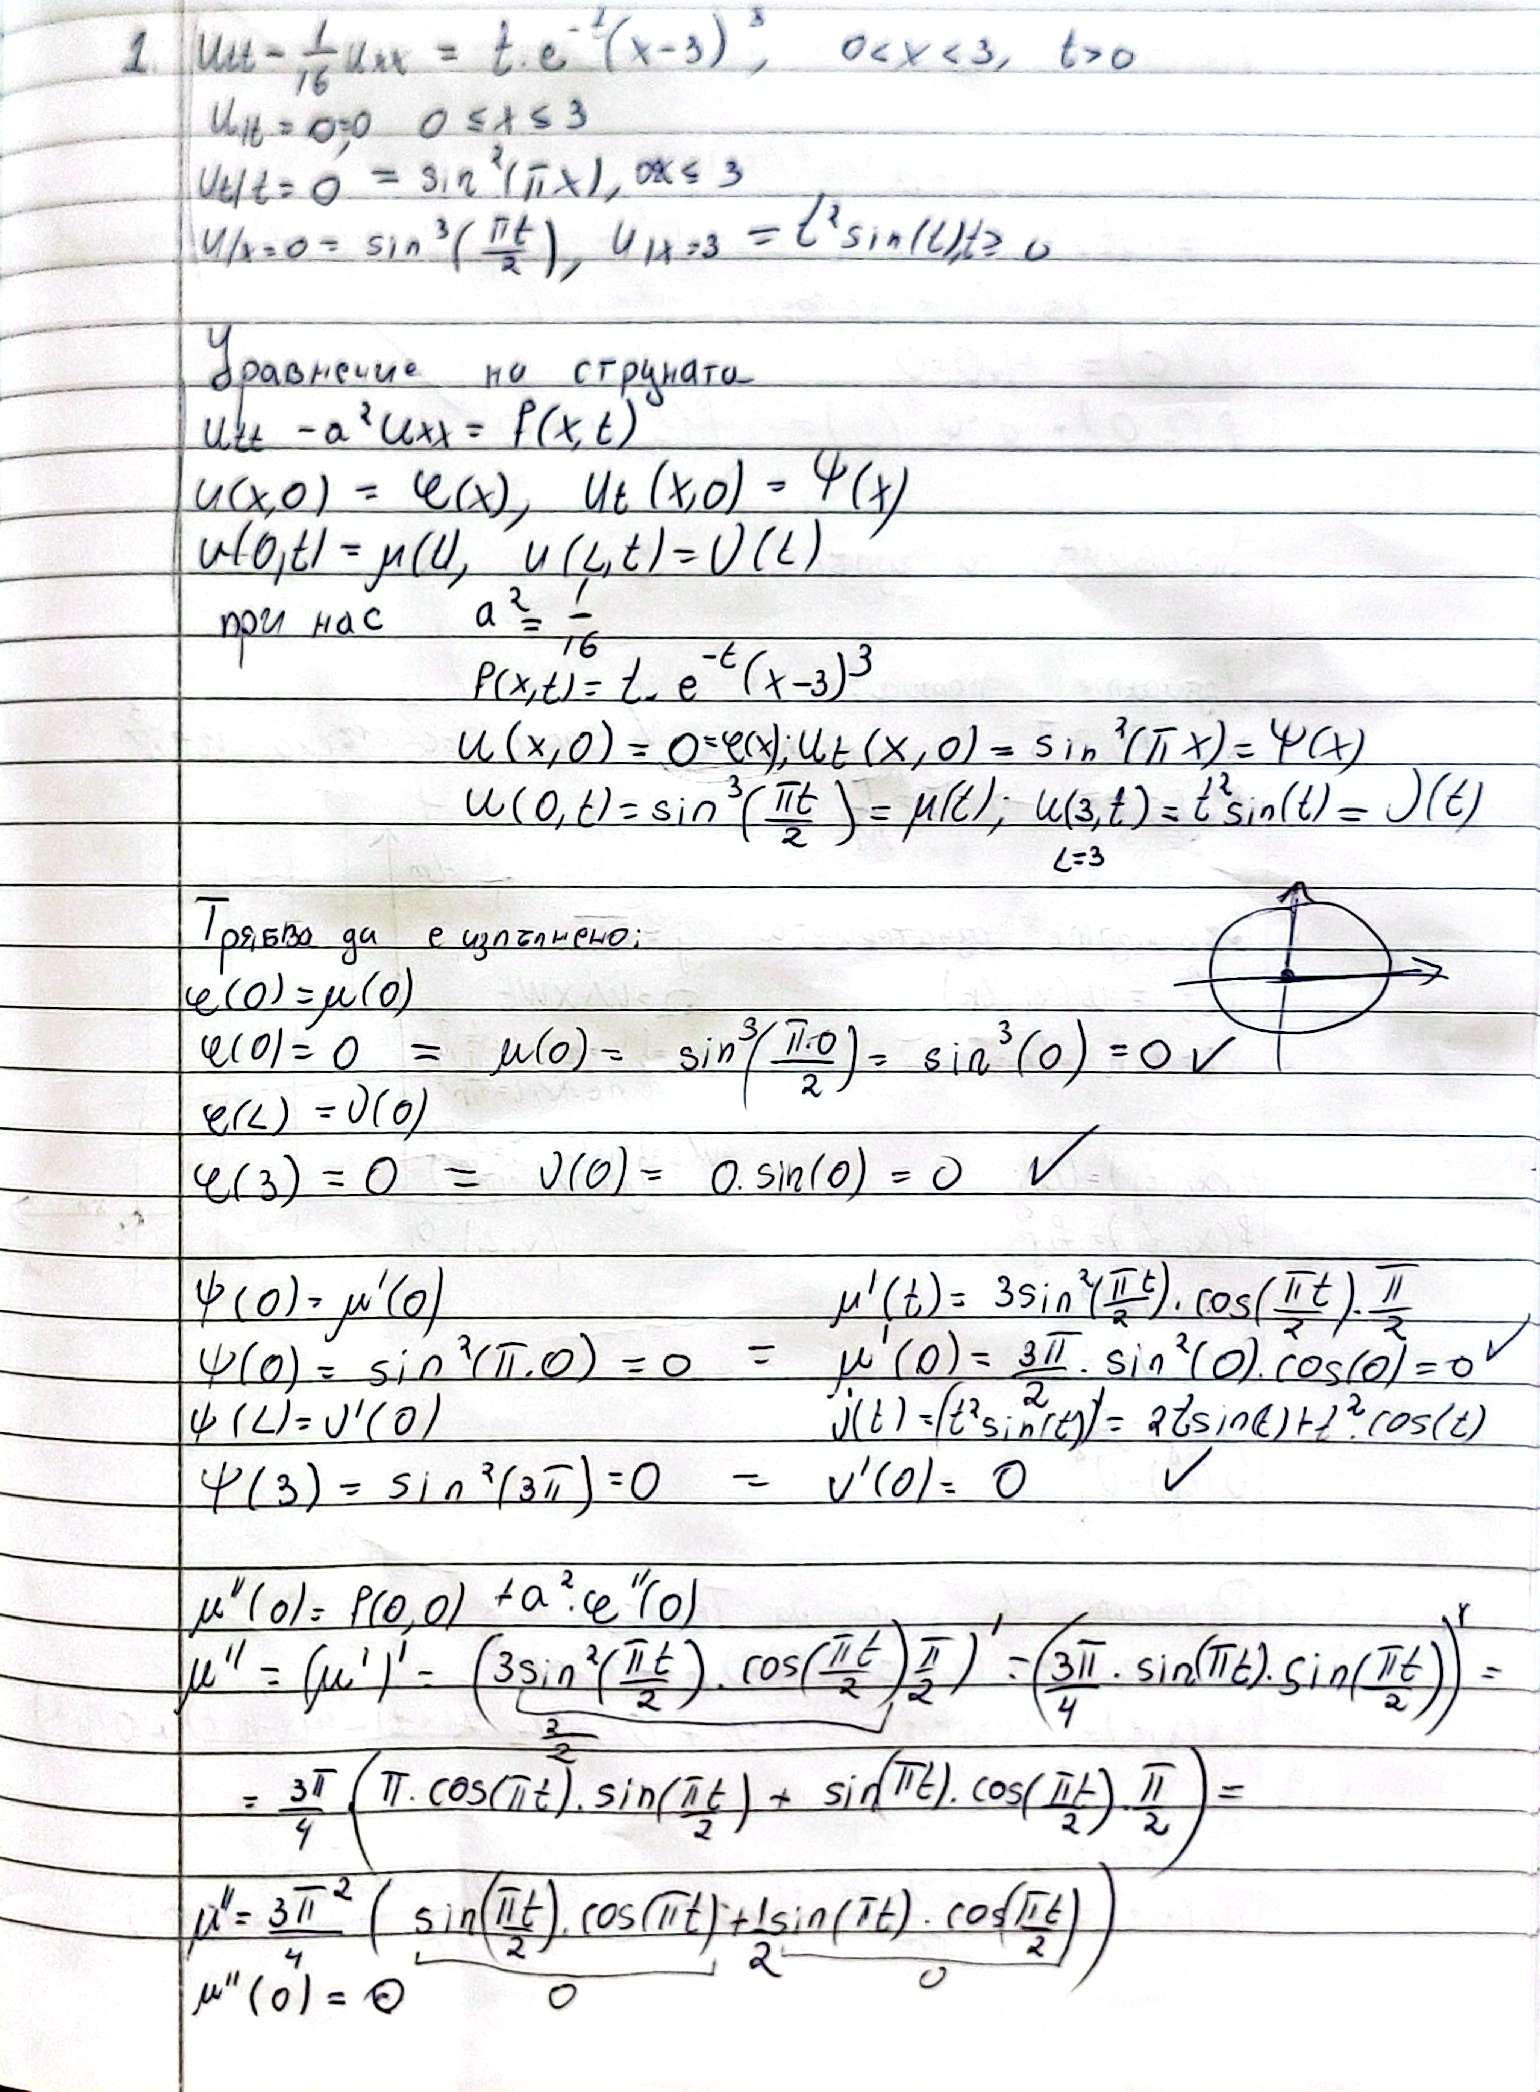 1. Utt - 1/16 Uxx = t.e^-t (x-3)^3, 0<x<3, t>0
U|t=0=0, 0≤x≤3
Ut|t=0 = sin²(πx), 0≤x≤3
U|x=0 = sin³(πt/2), U|x=3 = t²sin(t), t≥0
Уравнение на струната
Utt - a²Uxx = f(x,t)
u(x,0) = φ(x), Ut(x,0) = Ψ(x)
u(0,t) = μ(t), u(L,t) = ν(t)
при нас a² = 1/16
f(x,t) = t. e^-t (x-3)³
u(x,0) = 0 = φ(x); Ut(x,0) = sin²(πx) = Ψ(x)
u(0,t) = sin³(πt/2) = μ(t); u(3,t) = t²sin(t) = ν(t)
L=3
Трябва да е изпълнено:
φ(0) = μ(0)
φ(0) = 0 = μ(0) = sin³(π.0/2) = sin³(0) = 0 ✓
φ(L) = ν(0)
φ(3) = 0 = ν(0) = 0.sin(0) = 0 ✓
Ψ(0) = μ'(0) μ'(t) = 3sin²(πt/2).cos(πt/2).π/2
Ψ(0) = sin²(π.0) = 0 = μ'(0) = 3π/2 . sin²(0).cos(0) = 0 ✓
Ψ(L) = ν'(0) ν'(t) = (t²sin(t))' = 2t.sin(t) + t².cos(t)
Ψ(3) = sin²(3π) = 0 = ν'(0) = 0 ✓
μ''(0) = f(0,0) + a².φ''(0)
μ'' = (μ')' = (3sin²(πt/2).cos(πt/2)π/2)' = (3π/4 . sin(πt).sin(πt/2))' =
3/2
= 3π/4 (π.cos(πt).sin(πt/2) + sin(πt).cos(πt/2).π/2) =
μ'' = 3π²/4 (sin(πt/2).cos(πt) + 1/2 sin(πt).cos(πt/2))
μ''(0) = 0 0 0